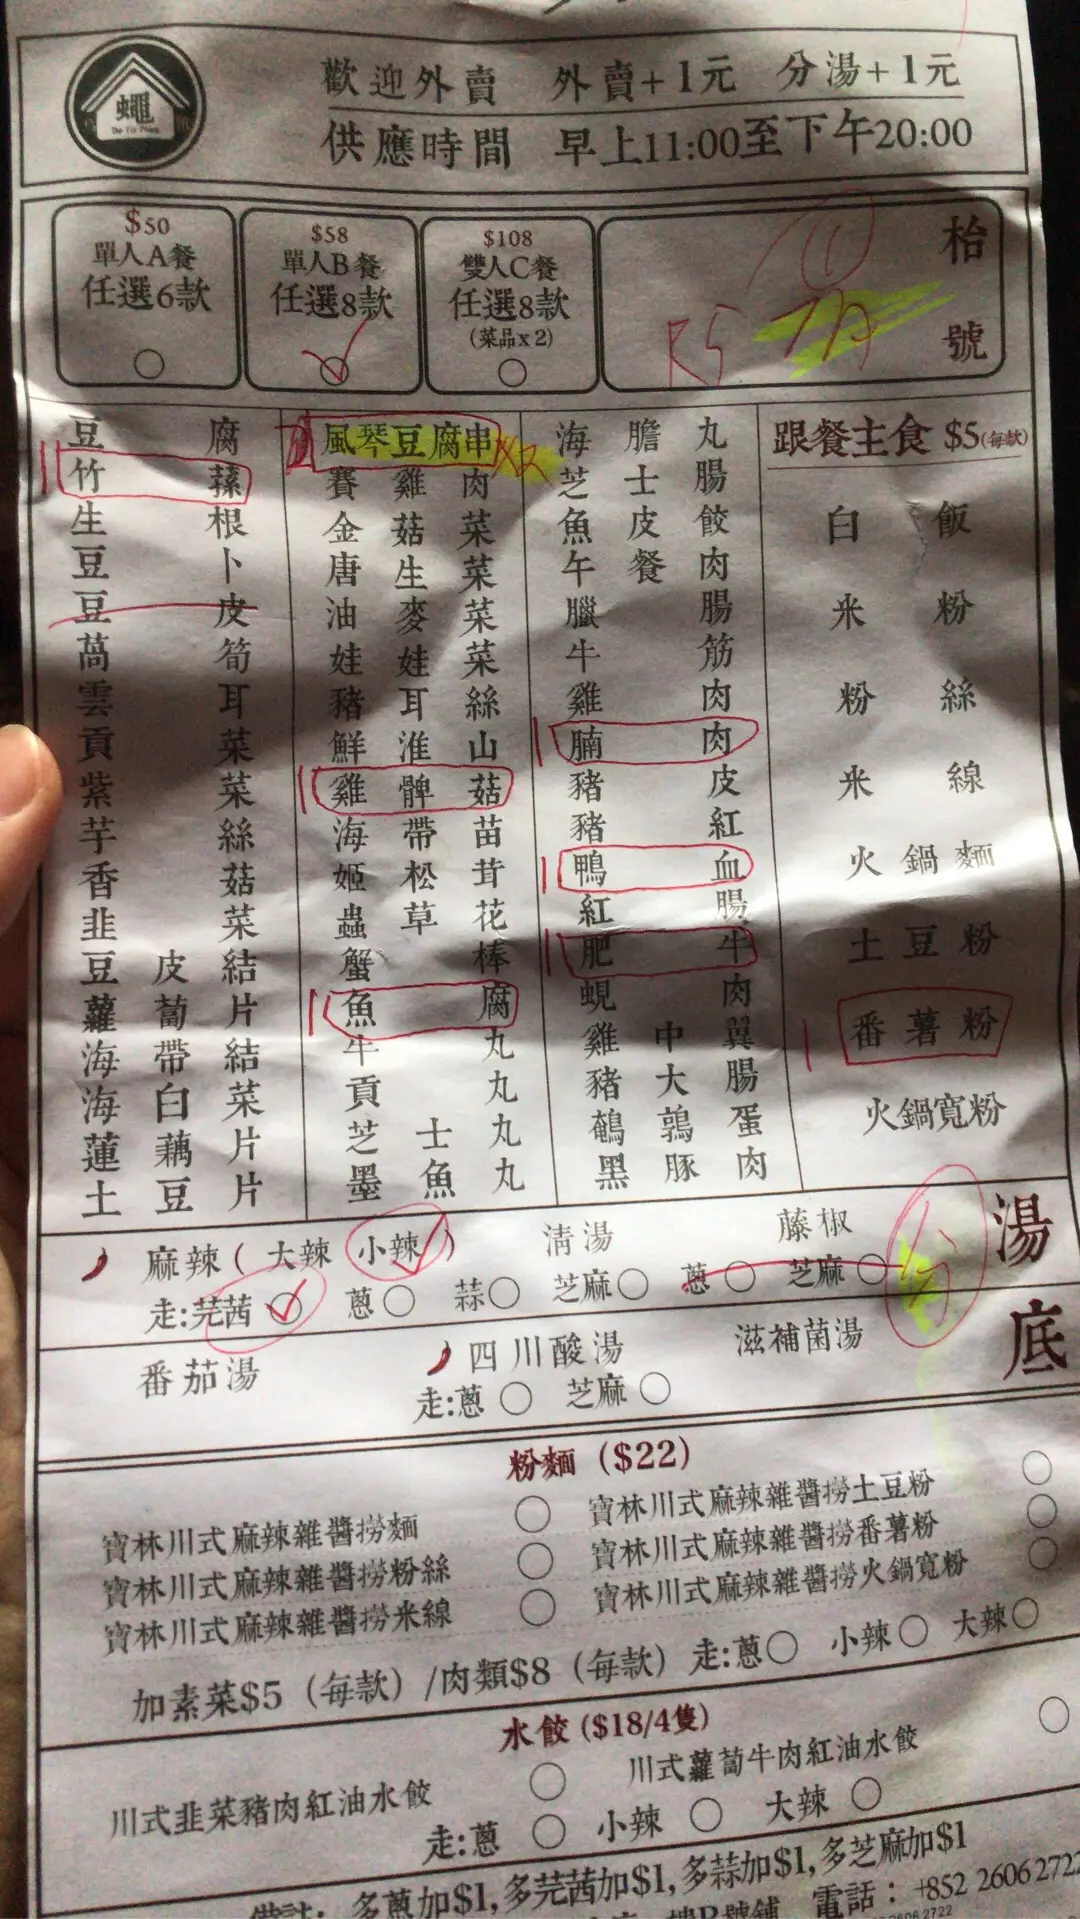 歡迎外賣 外賣+1元 分湯+1元
供應時間 早上11:00至下午20:00
$50
單人A餐
任選6款
$58
單人B餐
任選8款
$108
雙人C餐
任選8款
(菜品x2)
枱號
R5 7A
豆腐
竹蓀
生根
豆卜
豆皮
萵筍
雲耳
貢菜
紫菜
芋絲
香菇
韭菜
豆皮結
蘿蔔片
海帶結
海白菜
蓮藕片
土豆片
風琴豆腐串 x2
賽雞肉
金菇菜
唐生菜
油麥菜
娃娃菜
豬耳絲
鮮淮山
雞髀菇
海帶苗
姬松茸
蟲草花
蟹棒
魚腐
牛丸
貢丸
芝士丸
墨魚丸
海膽丸
芝士腸
魚皮餃
午餐肉
臘腸
牛筋
雞肉
腩肉
豬皮
豬紅
鴨血
紅腸
肥牛
蜆肉
雞中翼
豬大腸
鵪鶉蛋
黑豚肉
跟餐主食 $5(每款)
白飯
米粉
粉絲
米線
火鍋麵
土豆粉
番薯粉
火鍋寬粉
湯底
麻辣( 大辣 小辣 ) 清湯 藤椒
走:芫茜 蔥 蒜 芝麻 蔥 芝麻
分
番茄湯 四川酸湯 滋補菌湯
走:蔥 芝麻
粉麵 ($22)
寶林川式麻辣雜醬撈麵 寶林川式麻辣雜醬撈土豆粉
寶林川式麻辣雜醬撈粉絲 寶林川式麻辣雜醬撈番薯粉
寶林川式麻辣雜醬撈米線 寶林川式麻辣雜醬撈火鍋寬粉
加素菜$5 (每款) /肉類$8 (每款) 走:蔥 小辣 大辣
水餃 ($18/4隻)
川式韭菜豬肉紅油水餃 川式蘿蔔牛肉紅油水餃
走:蔥 小辣 大辣
備註: 多蔥加$1, 多芫茜加$1, 多蒜加$1, 多芝麻加$1
樓B號鋪 電話: +852 2606 2722